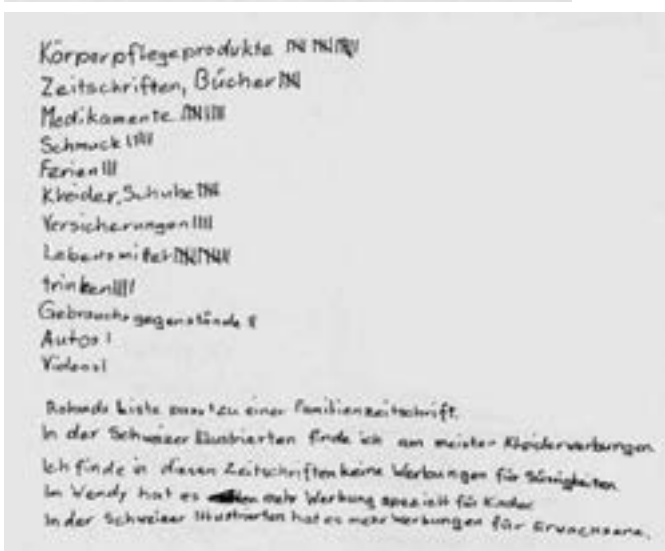 Körperpflegeprodukte
Zeitschriften, Bücher
Medikamente
Schmuck
Ferien
Kleider, Schuhe
Versicherungen
Lebensmittel
trinken
Gebrauchsgegenstände
Autos
Videos
Rolands Liste passt zu einer Familienzeitschrift.
In der Schweizer Illustrierten finde ich am meisten Kleiderwerbungen.
Ich finde in diesen Zeitschriften keine Werbungen für Süssigkeiten
Im Wendy hat es mehr Werbung speziell für Kinder
In der Schweizer Illustrierten hat es mehr Werbungen für Erwachsene.